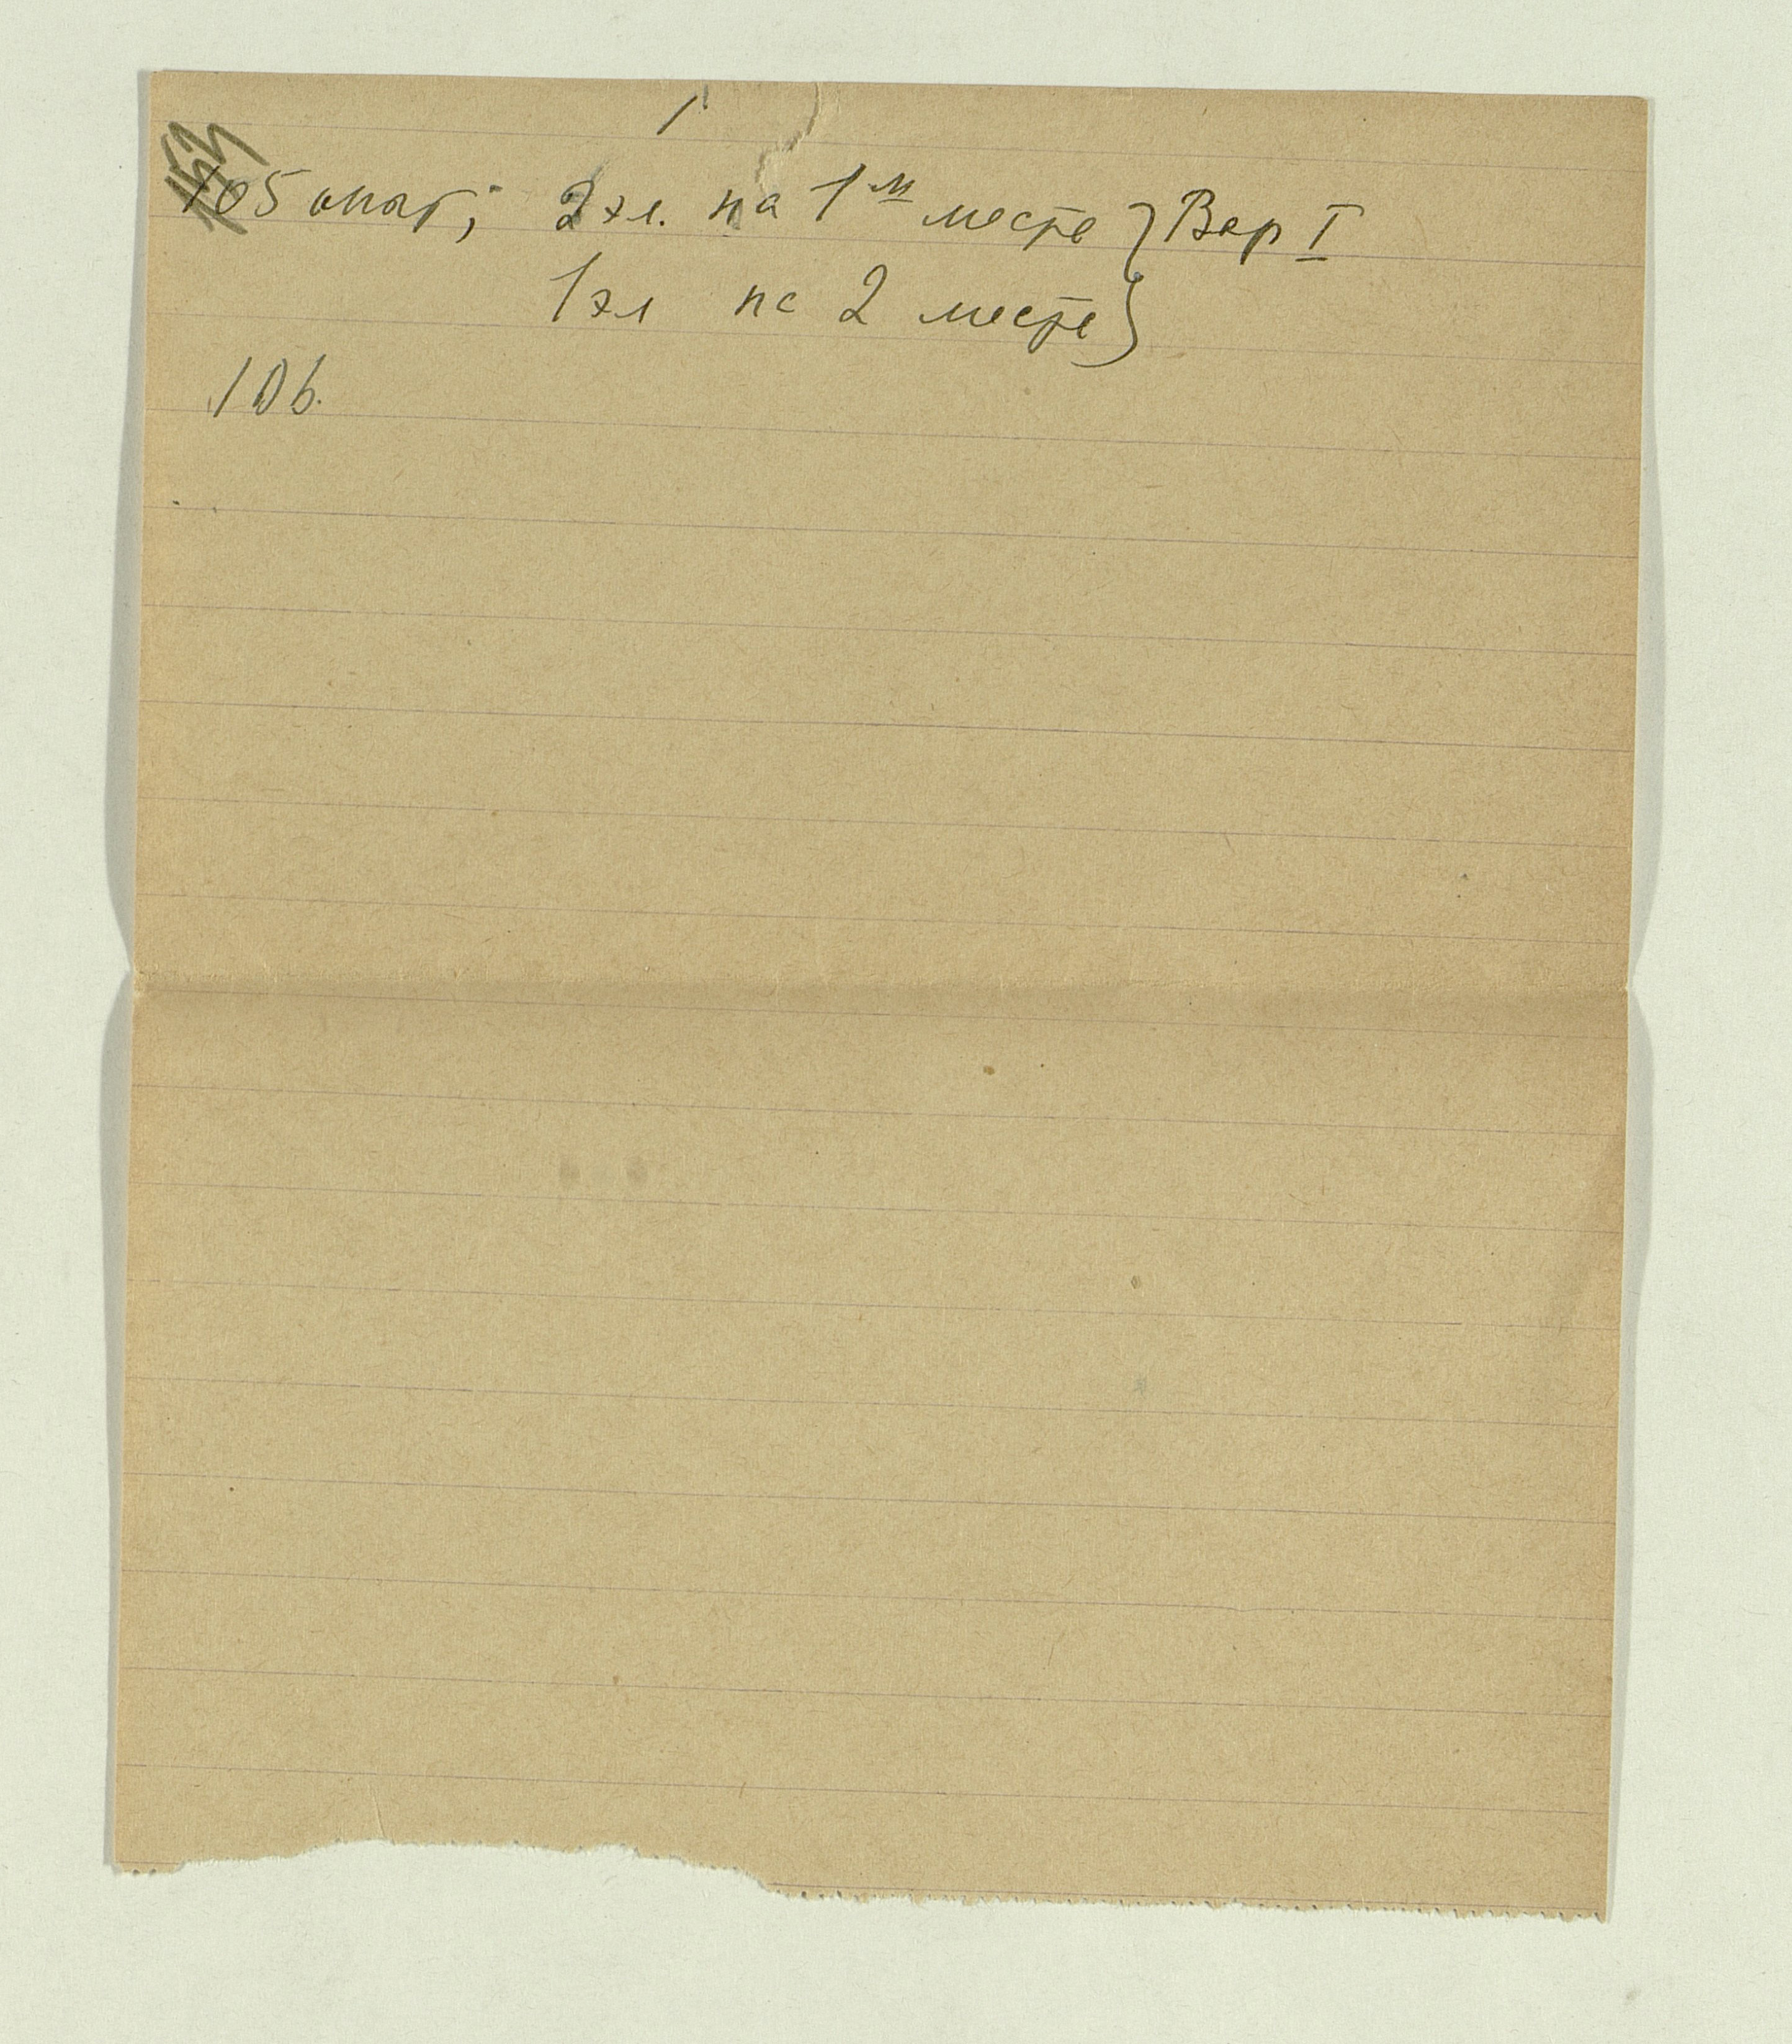 105 опат; 2 эл. на 1м месте } Вер I
1 эл на 2 месте }
106.